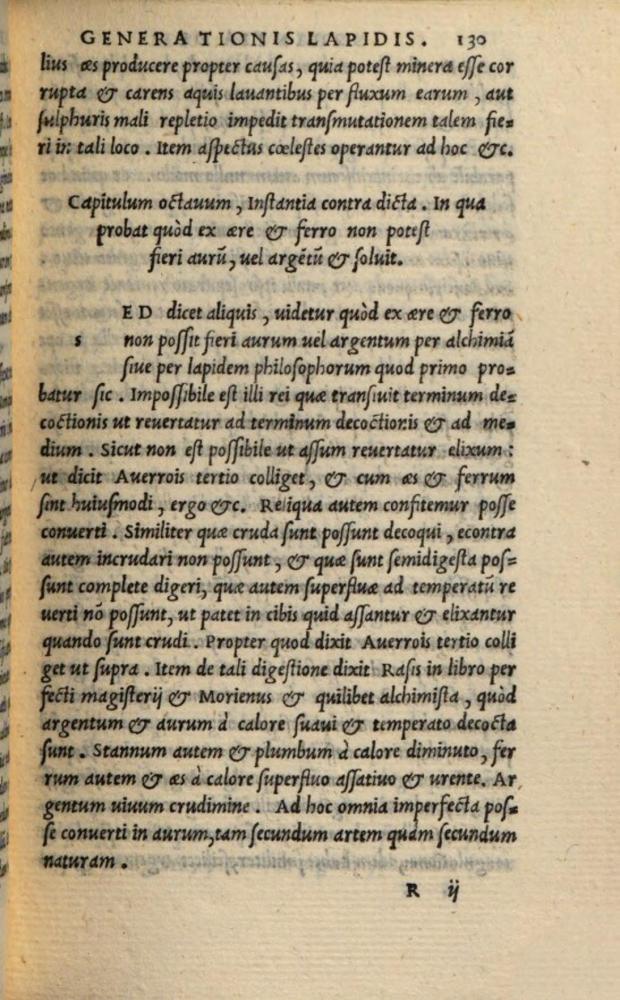 GENERATIONIS LAPIDIS. 130
lius æs producere propter cauſas, quia poteſt minera eſſe cor
rupta & carens aquis lauantibus per fluxum earum, aut
ſulphuris mali repletio impedit tranſmutationem talem fie=
ri in tali loco. Item aſpectus cœleſtes operantur ad hoc &c.
Capitulum octauum, Inſtantia contra dicta. In qua
probat quòd ex ære & ferro non poteſt
fieri aurũ, uel argẽtũ & ſoluit.
ED dicet aliquis, uidetur quòd ex ære & ferro
S non poſſit fieri aurum uel argentum per alchimiã
ſiue per lapidem philoſophorum quod primo pro=
batur ſic. Impoſſibile eſt illi rei quæ tranſiuit terminum de=
coctionis ut reuertatur ad terminum decoctionis & ad me=
dium. Sicut non eſt poſſibile ut aſſum reuertatur elixum:
ut dicit Auerrois tertio colliget, & cum æs & ferrum
ſint huiuſmodi, ergo &c. Reliqua autem confitemur poſſe
conuerti. Similiter quæ cruda ſunt poſſunt decoqui, econtra
autem incrudari non poſſunt, & quæ ſunt ſemidigeſta poſ=
ſunt complete digeri, quæ autem ſuperfluæ ad temperatũ re
uerti nõ poſſunt, ut patet in cibis quid aſſantur & elixantur
quando ſunt crudi. Propter quod dixit Auerrois tertio colli
get ut ſupra. Item de tali digeſtione dixit Raſis in libro per
fecti magiſterij & Morienus & quilibet alchimiſta, quòd
argentum & aurum à calore ſuaui & temperato decocta
ſunt. Stannum autem & plumbum à calore diminuto, fer
rum autem & æs à calore ſuperfluo aſſatiuo & urente. Ar
gentum uiuum crudimine. Ad hoc omnia imperfecta poſ=
ſe conuerti in aurum, tam ſecundum artem quàm ſecundum
naturam.
R ij